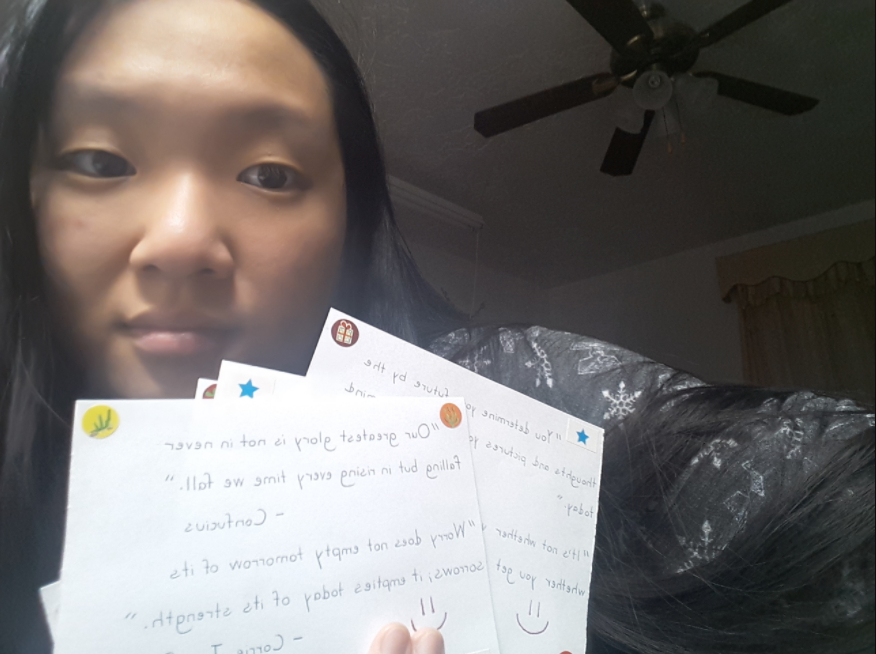 "Our greatest glory is not in never
falling but in rising every time we fall."
- Confucius
"Worry does not empty tomorrow of its
sorrows; it empties today of its strength."
- Corrie
"You determine future by the
thoughts and pictures mind
today."
"It's not whether
whether you get